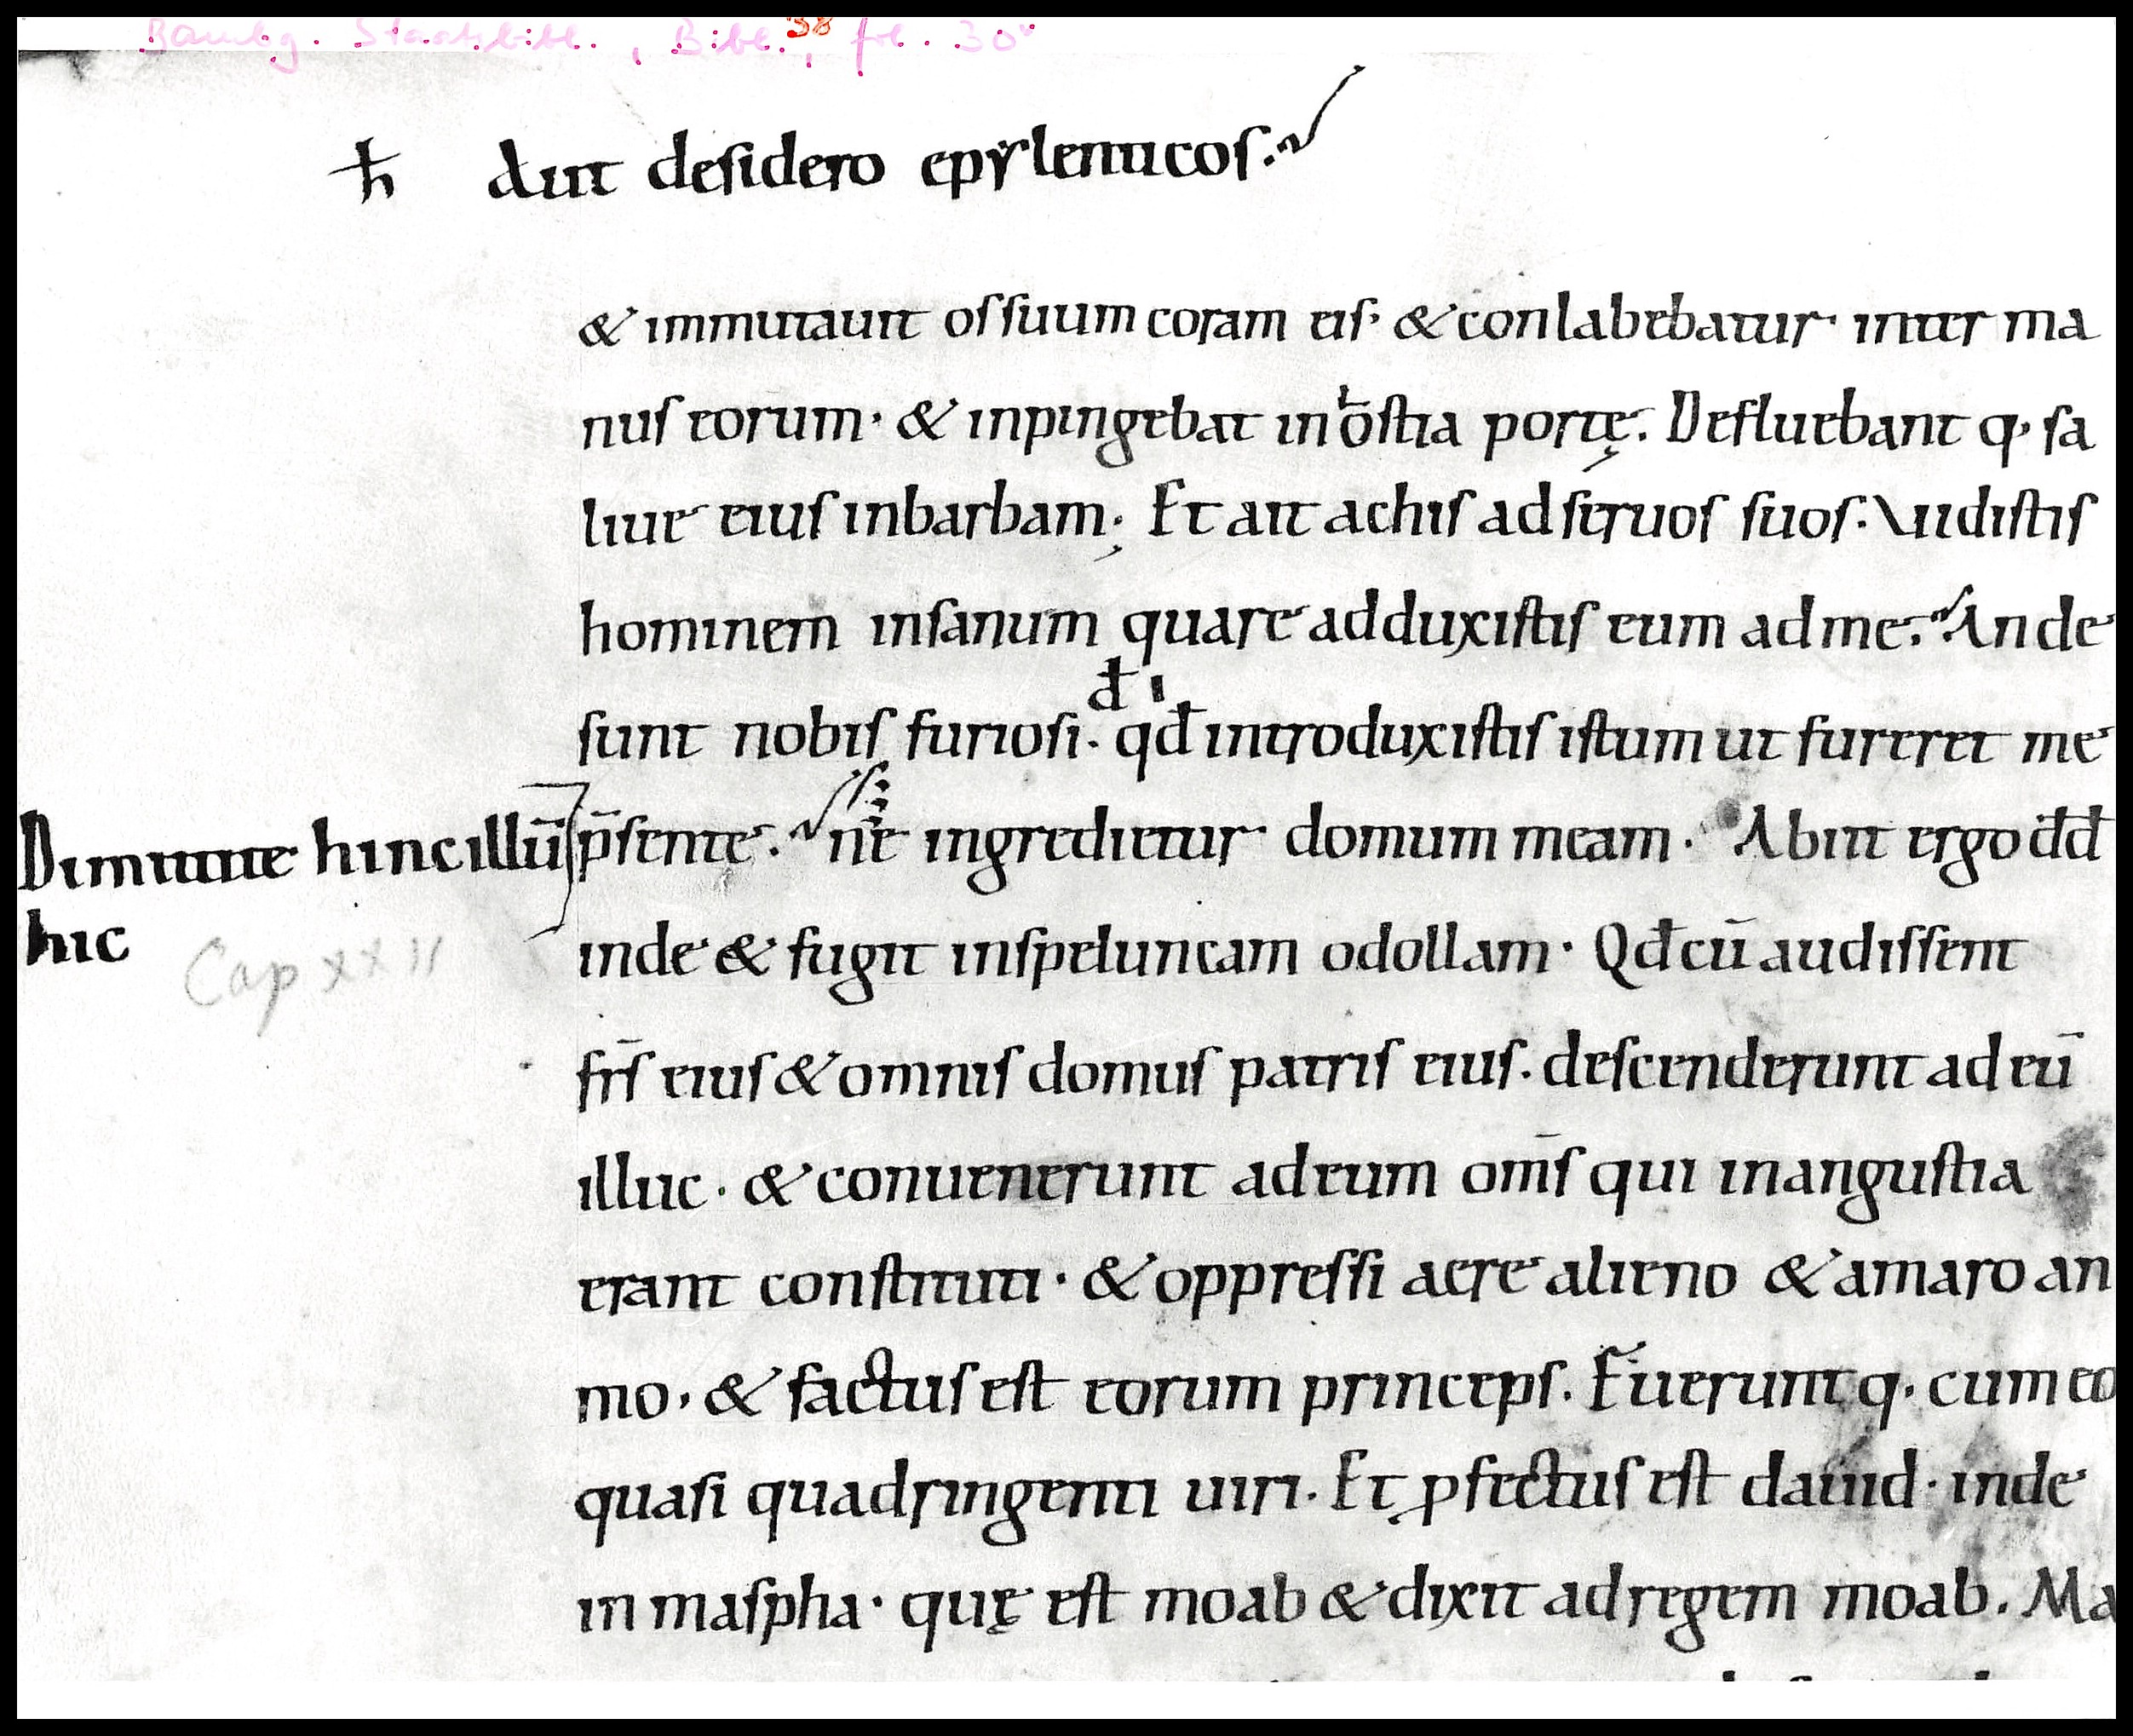 Bambg. Staatsbibl., Bibl. 38, fol. 30v
ħ aut desidero epẏlenticos.
& immutauit os suum coram eis· & conlabebatur inter ma
nus eorum· & inpingebat in ostia portę. Defluebant q· sa
liue eius inbarbam; Et ait achis ad seruos suos. Vidistis
hominem insanum quare adduxistis eum ad me. An de
đ
sunt nobis furiosi. qđ introduxistis istum ut fureret me
Dimittite hinc illū p̄sente. ne ingredietur domum meam. Abiit ergo dd̄
hic
Cap XXII
inde & fugit inspeluncam odollam· Qđ cū audissent
fr̄s eius & omnis domus patris eius. descenderunt ad eū
illuc· & conuenerunt ad eum om̄s qui in angustia
erant constituti· & oppressi aere alieno & amaro an
mo, & factus est eorum princeps. Fuerunt q· cum eo
quasi quadringenti uiri. Et ꝓfectus est dauid· inde
in maspha· quę est moab & dixit ad regem moab. Ma